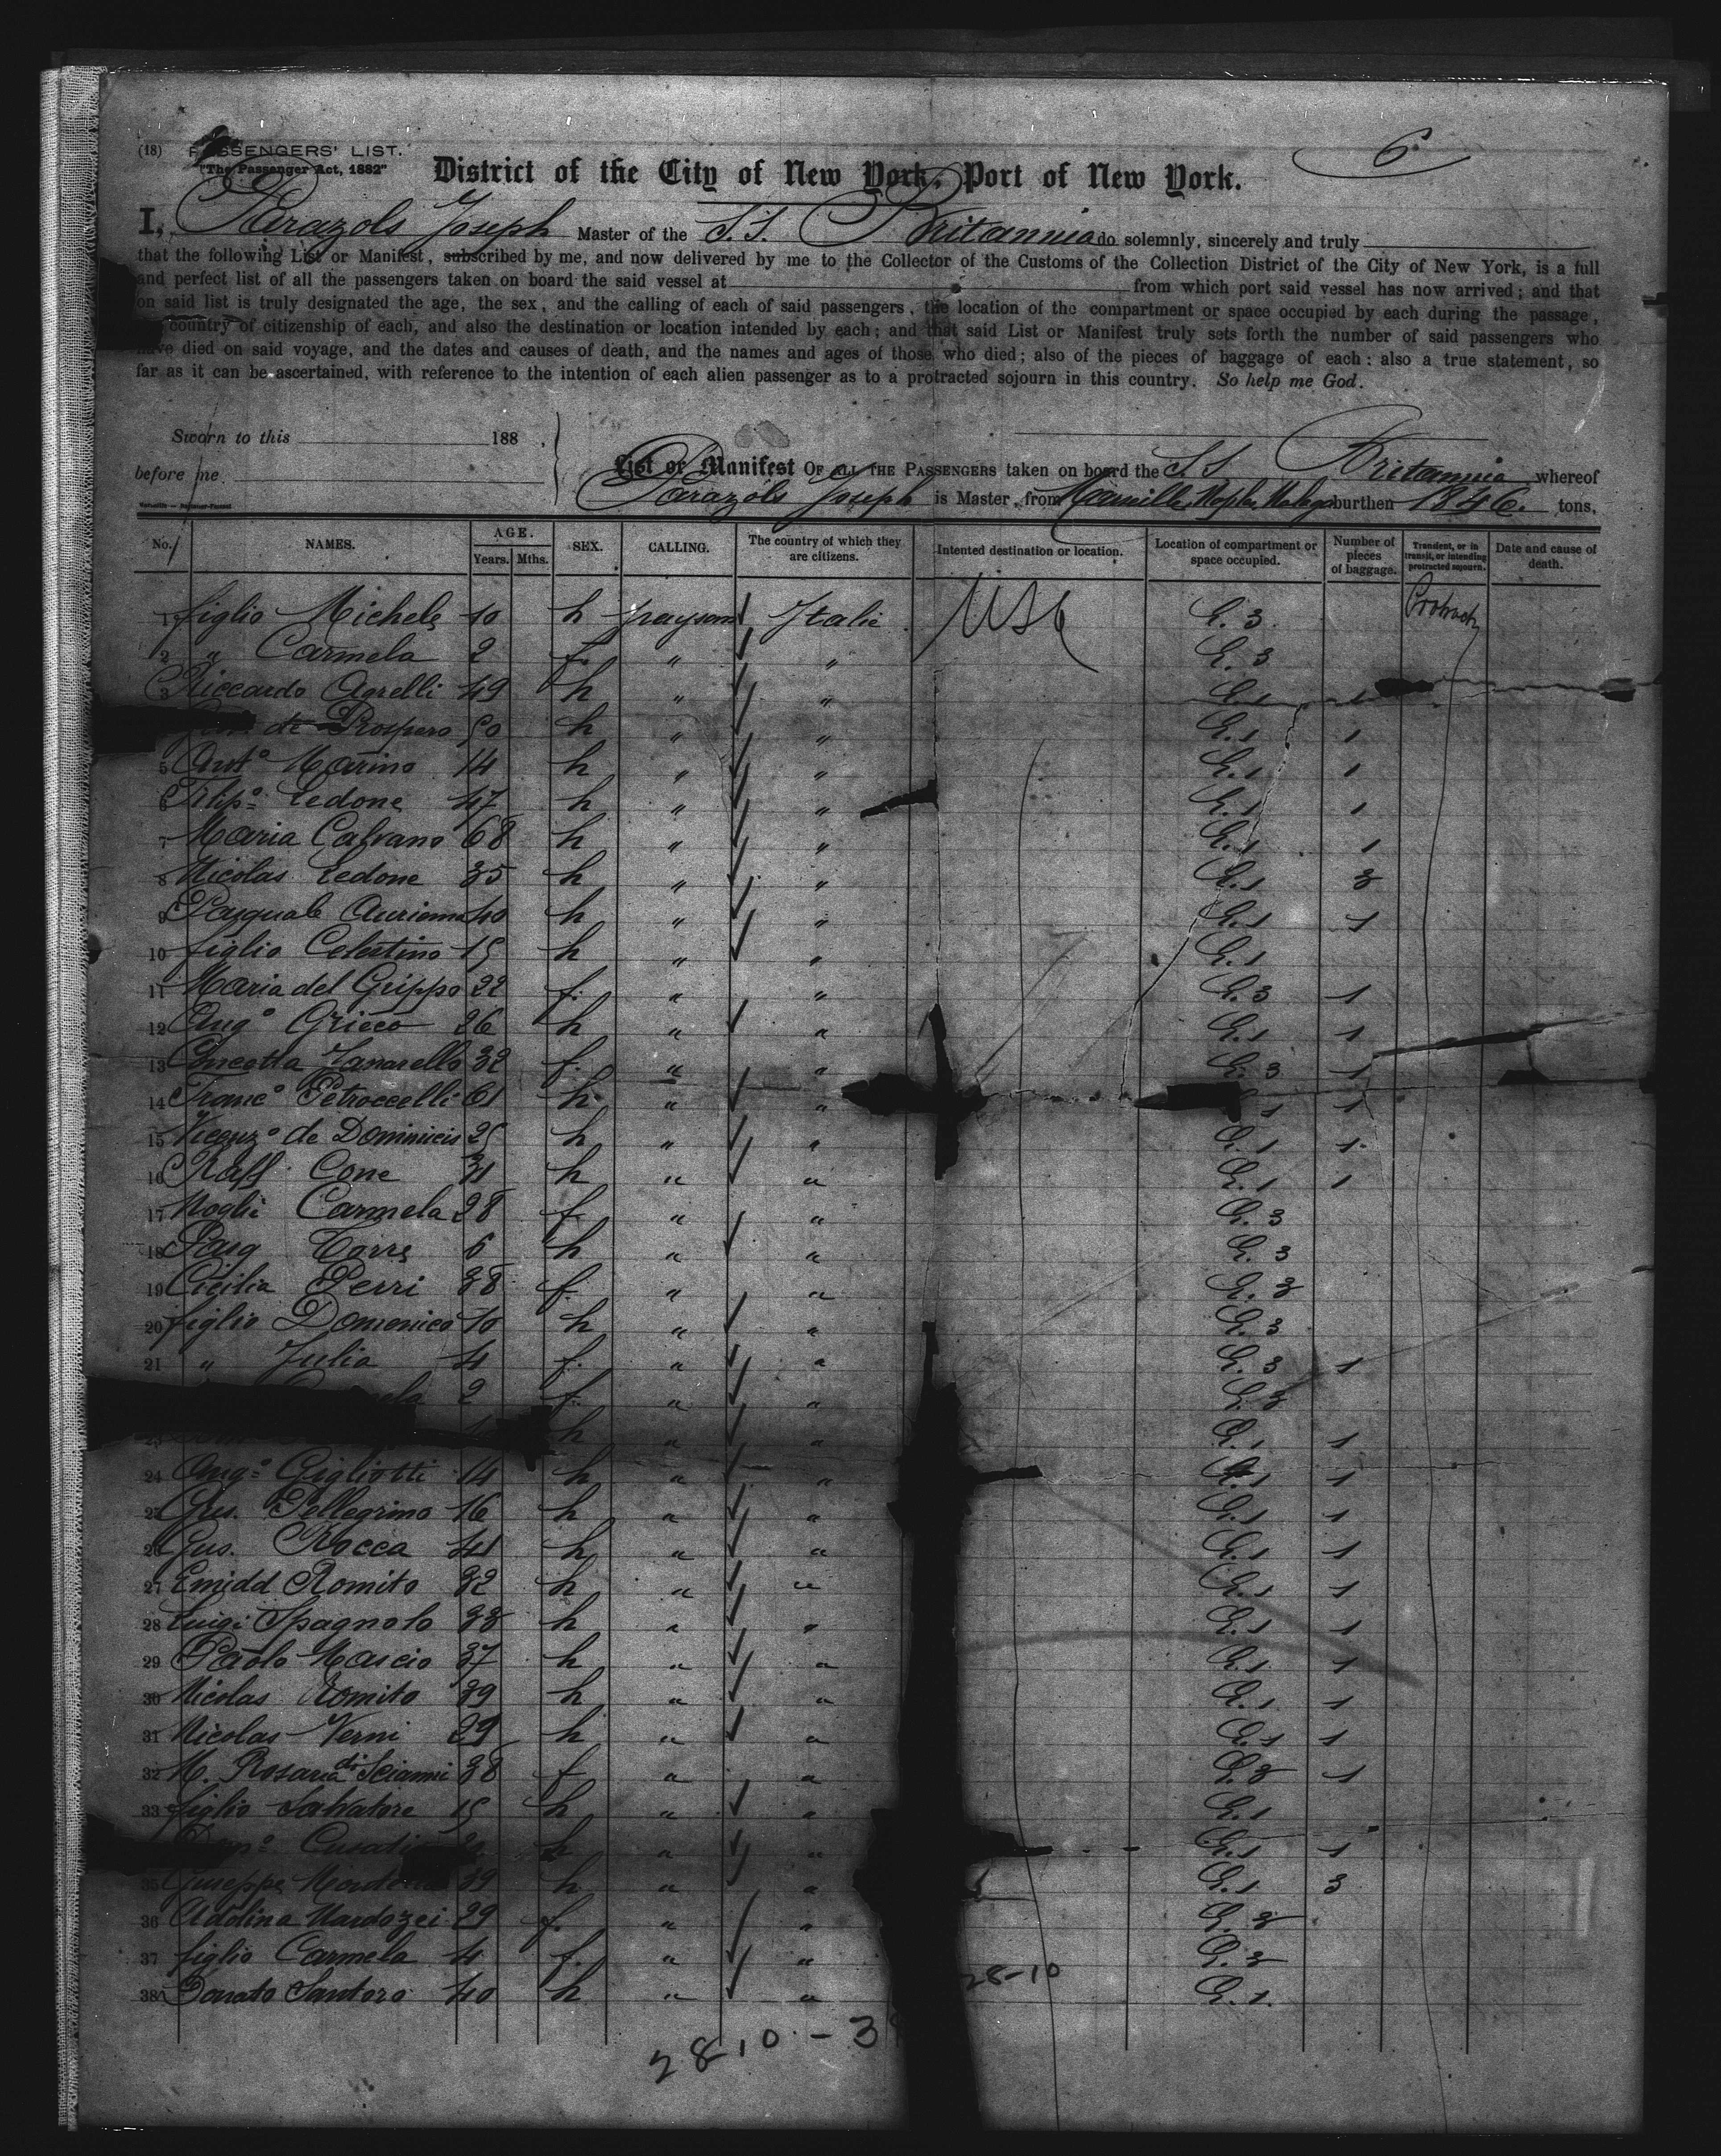 (18) PASSENGERS' LIST. 6
"The Passenger Act, 1882" District of the City of New York, Port of New York.
I, Parazols Joseph Master of the S.S. Britannia do solemnly, sincerely and truly
that the following List or Manifest, subscribed by me, and now delivered by me to the Collector of the Customs of the Collection District of the City of New York, is a full
and perfect list of all the passengers taken on board the said vessel at from which port said vessel has now arrived; and that
on said list is truly designated the age, the sex, and the calling of each of said passengers, the location of the compartment or space occupied by each during the passage,
country of citizenship of each, and also the destination or location intended by each; and that said List or Manifest truly sets forth the number of said passengers who
have died on said voyage, and the dates and causes of death, and the names and ages of those who died; also of the pieces of baggage of each: also a true statement, so
far as it can be ascertained, with reference to the intention of each alien passenger as to a protracted sojourn in this country. So help me God.
Sworn to this 188 ,
before me
List or Manifest OF ALL THE PASSENGERS taken on board the S.S Britannia whereof
Parazols Joseph is Master, from burthen 1846. tons,
No. NAMES. AGE. Years. Mths. SEX. CALLING. The country of which they are citizens. Intented destination or location. Location of compartment or space occupied. Number of pieces of baggage. Transient, or in transit, or intending protracted sojourn. Date and cause of death.
1 figlio Michele 10 h paysan Italie USA E. 3
2 " Carmela 2 f. " " E. 3
3 Riccardo Agrelli 49 h " " E. 1 1
de Prospero 50 h " " E. 1 1
5 Antº Marino 14 h " " E. 1 1
6 Filipº Ledone 47 h " " E. 1 1
7 Maria Calvano 68 h " " E. 1 1
8 Nicolas Ledone 35 h " " E. 1 3
9 Pasquale Auriema 40 h " " E. 1 1
10 figlio Celestino 15 h " " E. 1
11 Maria del Grippo 22 f. " " E. 3 1
12 Angº Grieco 26 h " " E. 1 1
13 Concetta Zanarello 32 f. " " E. 3 1
14 Francº Petroccelli 61 h " " 1 1
15 Vicenzº de Dominicis 25 h " " E. 1 1
16 Raff. Cone 31 h " " E. 1 1
17 Moglie Carmela 28 f " " E. 3
18 Pasq Torre 6 h " " E. 3
19 Cicilia Perri 38 f. " " E. 3
20 figlio Domenico 10 h " " E. 3
21 " Julia 4 f. " " E. 3 1
2 f. " " E. 3
23 h " " E. 1 1
24 Angº Gigliotti 14 h " " E. 1 1
25 Gius. Pellegrino 16 h " " E. 1 1
26 Gius. Rocca 41 h " " E. 1 1
27 Emidd Romito 32 h " " E. 1 1
28 Luigi Spagnolo 33 h " " E. 1 1
29 Paolo Mascio 37 h " " E. 1 1
30 Nicolas Romito 39 h " " E. 1 1
31 Nicolas Verni 29 h " " E. 1 1
32 M. Rosaria di Scianni 38 f " " E. 3 1
33 figlio Salvatore 15 h " " E. 1
h " " E. 1 1
35 Giuseppe 39 h " " E. 1 3
36 Adolina Nardozei 29 f. " " E. 3
37 figlio Carmela 4 f. " " E. 3
38 Donato Santoro 40 h " " E. 1.
28-10
2810-3